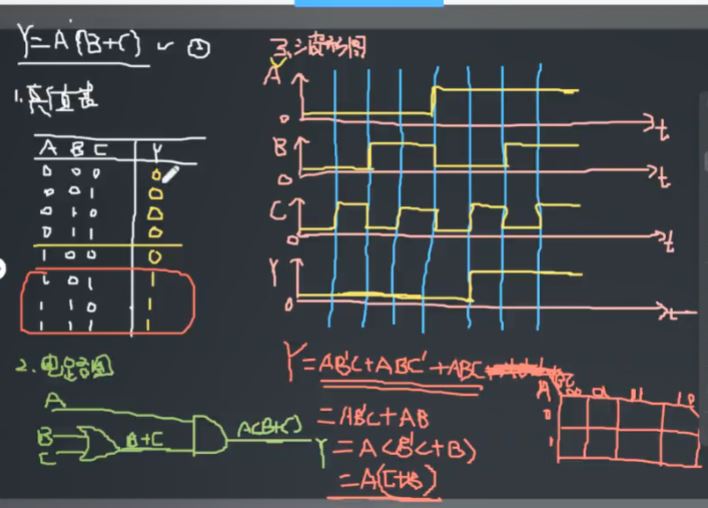 Y=A(B+C) ~ ①
1. 真值表
A B C Y
0 0 0 0
0 0 1 0
0 1 0 0
0 1 1 0
1 0 0 0
1 0 1 1
1 1 0 1
1 1 1 1
2. 电路图
A
B
C
B+C
A(B+C)
Y
3. 波形图
A
0
t
B
0
t
C
0
t
Y
0
t
Y=AB'C+ABC'+ABC
=AB'C+AB
=A(B'C+B)
=A(C+B)
A
00 01 11 10
0
1